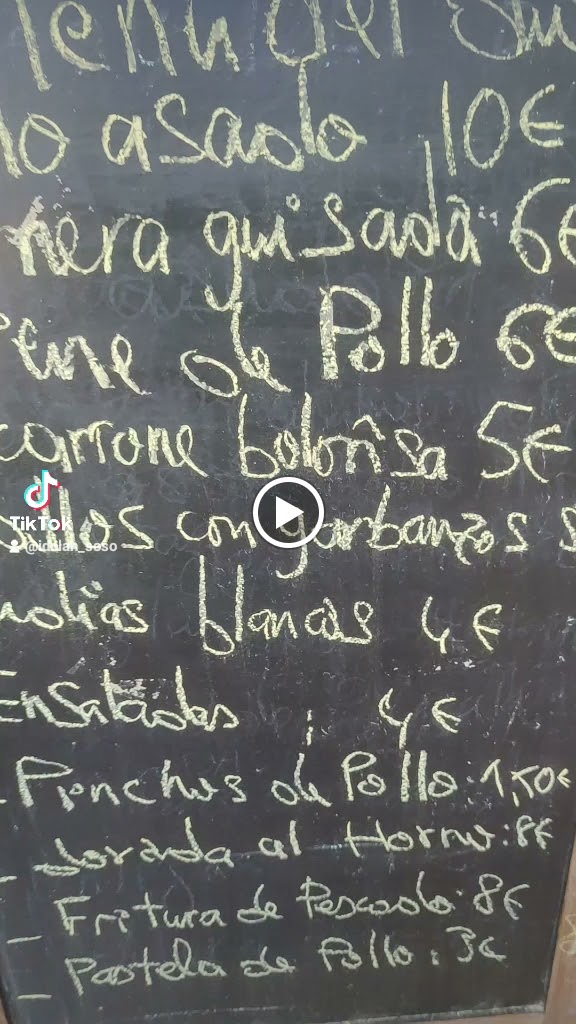 asado 10€
nera guisada 6€
de Pollo 6€
carrone boloñsa 5€
con garbanzos
blancas 4€
Ensaladas : 4€
- Pinchos de Pollo : 1,50€
- dorada al Horno : 8€
- Fritura de Pescado : 8€
- Pastela de Pollo : 3€
TikTok